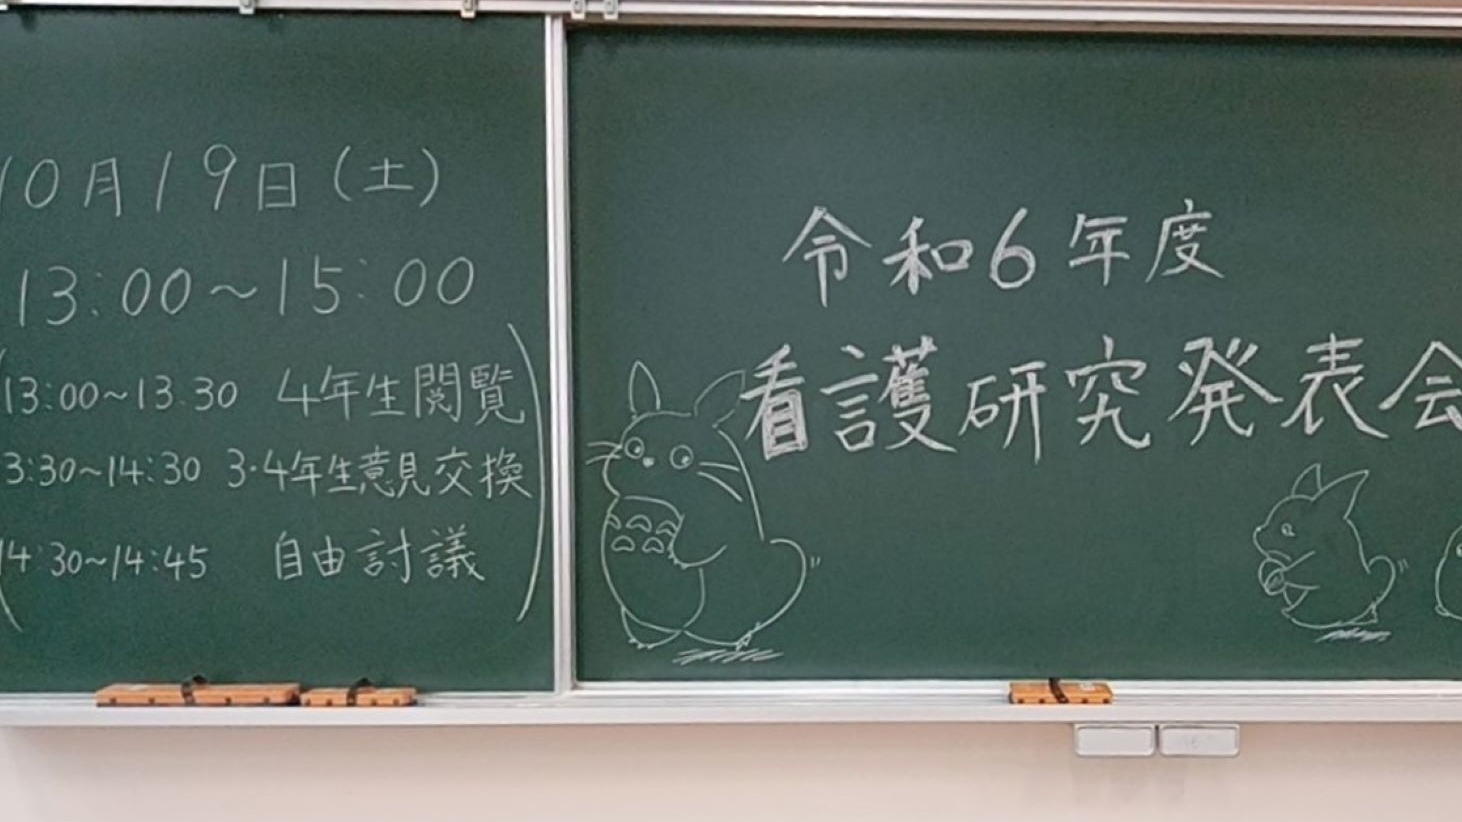 10月19日(土)
13:00～15:00
13:00～13:30 4年生閲覧
3:30～14:30 3・4年生意見交換
14:30～14:45 自由討議
令和6年度
看護研究発表会